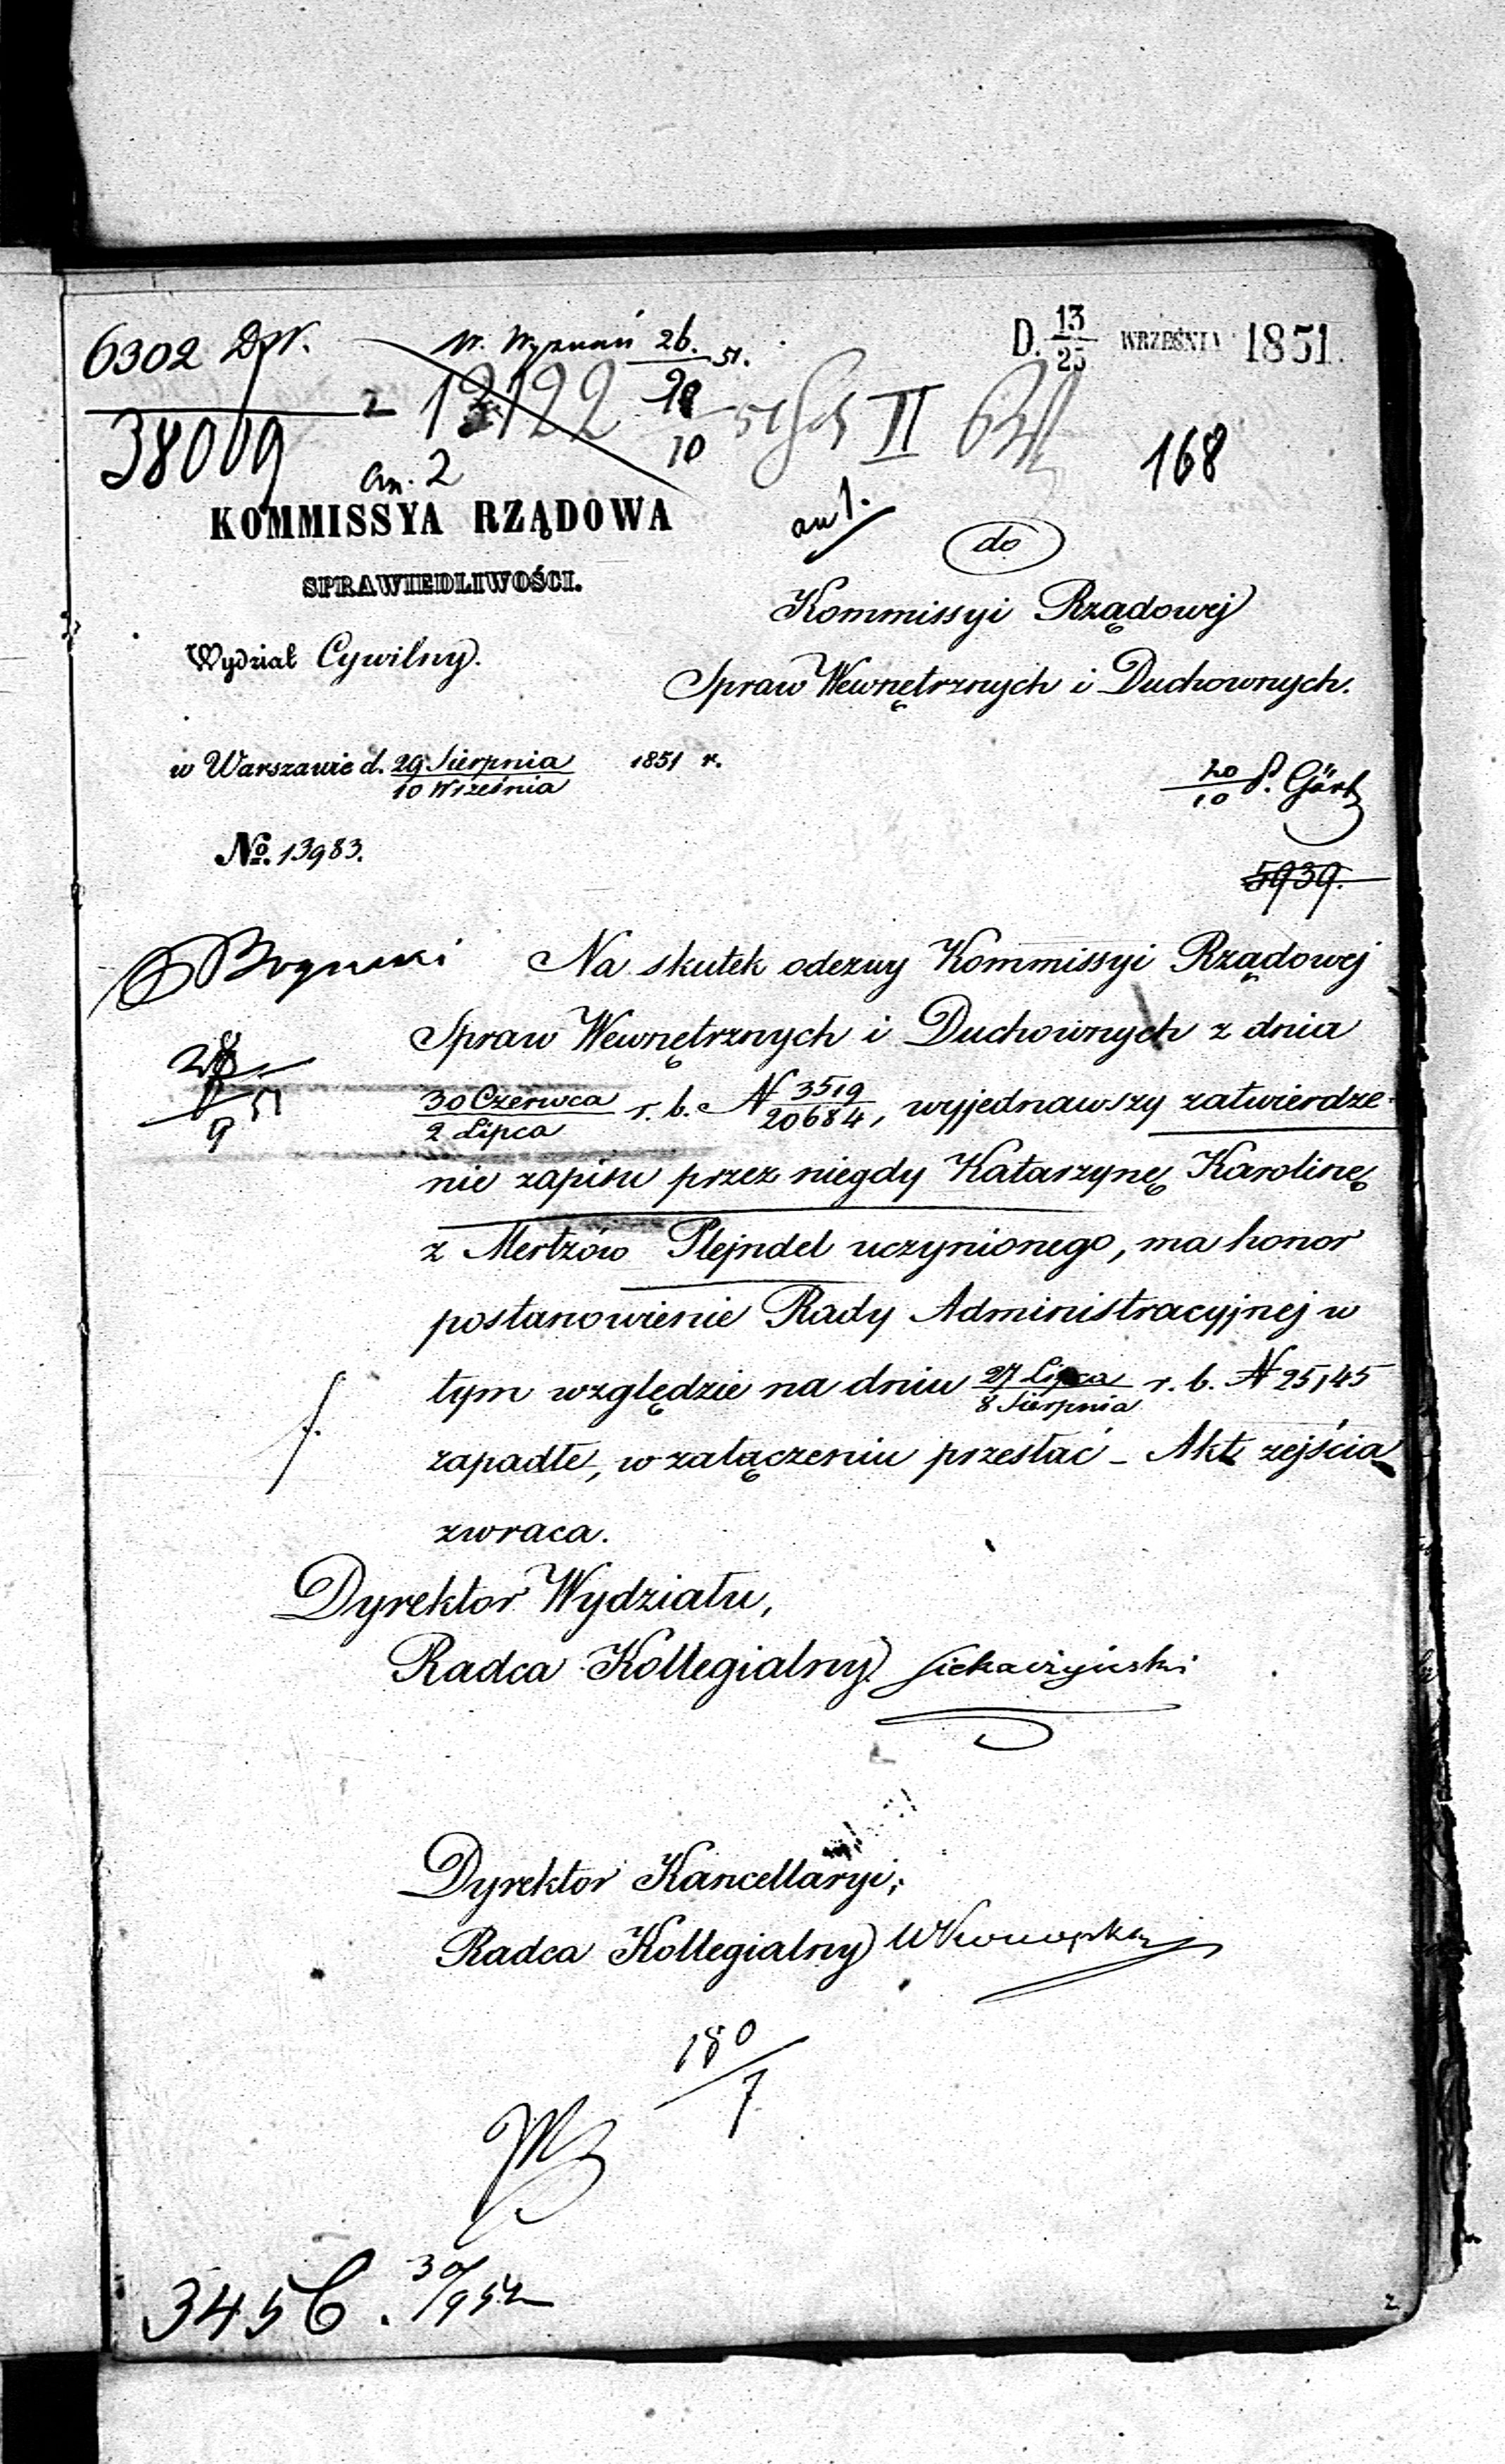 6302 Dpr.
38009
W. Wyznań 26. 51.
13122
an. 2
D. 13/25 WRZEŚNIA 1851.
II
168
KOMMISSYA RZĄDOWA
SPRAWIEDLIWOŚCI.
Wydział Cywilny.
do
Kommissyi Rządowej
Spraw Wewnętrznych i Duchownych.
w Warszawie d. 29 Sierpnia/10 Września 1851 r.
20/10
No. 13983.
5939.
Na skutek odezwy Kommissyi Rządowej
Spraw Wewnętrznych i Duchownych z dnia
30 Czerwca/2 Lipca r. b. N 3519/20684, wyjednawszy zatwierdze-
nie zapisu przez niegdy Katarzynę Karolinę
z Mertzów Plejndel uczynionego, ma honor
postanowienie Rady Administracyjnej w
tym względzie na dniu 27 Lipca/8 Sierpnia r. b. N 25,145
zapadłe, w załączeniu przesłać - Akt zejścia
zwraca.
Dyrektor Wydziału,
Radca Kollegialny
Dyrektor Kancellaryi,
Radca Kollegialny
180/7
3456.
2